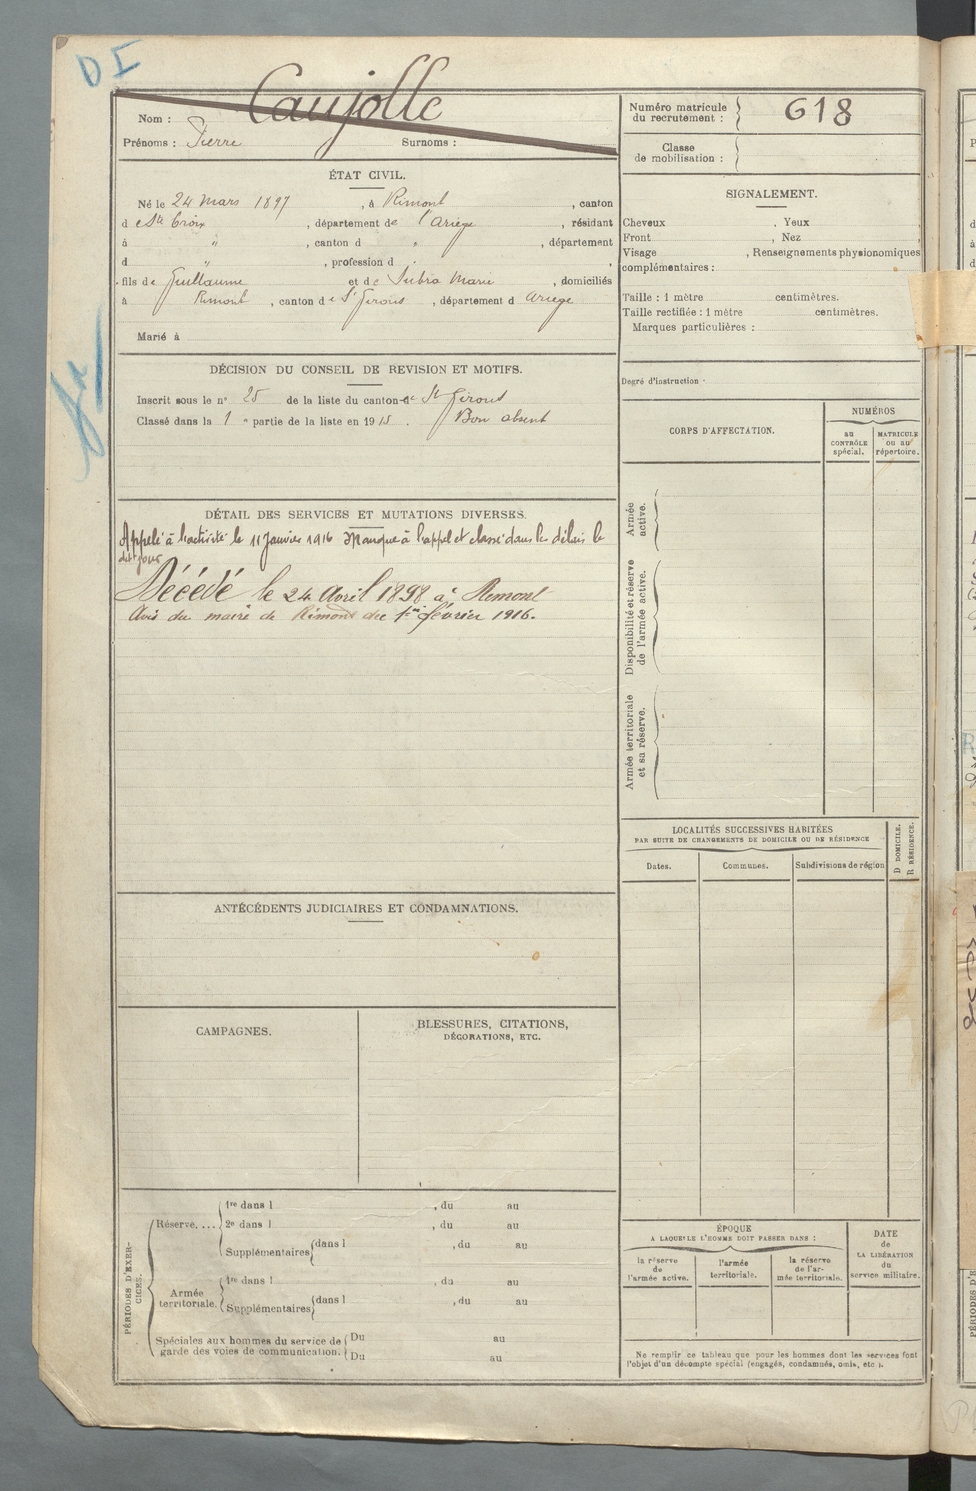 DI
Nom : Caujolle
Prénoms : Pierre Surnoms :
Numéro matricule du recrutement : 618
Classe de mobilisation :
ÉTAT CIVIL.
Né le 24 Mars 1897, à Rimont, canton
d e Ste Croix, département de l'Ariège, résidant
à " , canton d " , département
d " , profession d ,
fils de Guillaume et de Subra Marie, domiciliés
à Rimont, canton de St Girons, département d Ariège
Marié à
DÉCISION DU CONSEIL DE REVISION ET MOTIFS.
Inscrit sous le n° 25 de la liste du canton de St Girons
Classé dans la 1 e partie de la liste en 1915. Bon absent
DÉTAIL DES SERVICES ET MUTATIONS DIVERSES.
Appelé à l'activité le 11 Janvier 1916 Manque à l'appel et classé dans les délais le
dit jour
Décédé le 24 Avril 1898 à Rimont
Avis du maire de Rimont du 1er février 1916.
ANTÉCÉDENTS JUDICIAIRES ET CONDAMNATIONS.
CAMPAGNES.
BLESSURES, CITATIONS,
DÉCORATIONS, ETC.
PÉRIODES D'EXERCICES.
Réserve, .... 1re dans l , du au
2e dans l , du au
Supplémentaires dans l , du au
Armée territoriale. 1re dans l , du au
Supplémentaires dans l , du au
Spéciales aux hommes du service de garde des voies de communication. Du au
Du au
SIGNALEMENT.
Cheveux , Yeux ,
Front , Nez ,
Visage , Renseignements physionomiques
complémentaires :
Taille : 1 mètre centimètres.
Taille rectifiée : 1 mètre centimètres.
Marques particulières :
Degré d'instruction
CORPS D'AFFECTATION.
NUMÉROS
au CONTRÔLE spécial.
MATRICULE ou au répertoire.
Armée active.
Disponibilité et réserve de l'armée active.
Armée territoriale et sa réserve.
LOCALITÉS SUCCESSIVES HABITÉES
PAR SUITE DE CHANGEMENTS DE DOMICILE OU DE RÉSIDENCE
Dates.
Communes.
Subdivisions de région
D DOMICILE.
R RÉSIDENCE.
ÉPOQUE
A LAQUELLE L'HOMME DOIT PASSER DANS :
la réserve de l'armée active.
l'armée territoriale.
la réserve de l'armée territoriale.
DATE de LA LIBÉRATION du service militaire.
Ne remplir ce tableau que pour les hommes dont les services font
l'objet d'un décompte spécial (engagés, condamnés, omis, etc.).